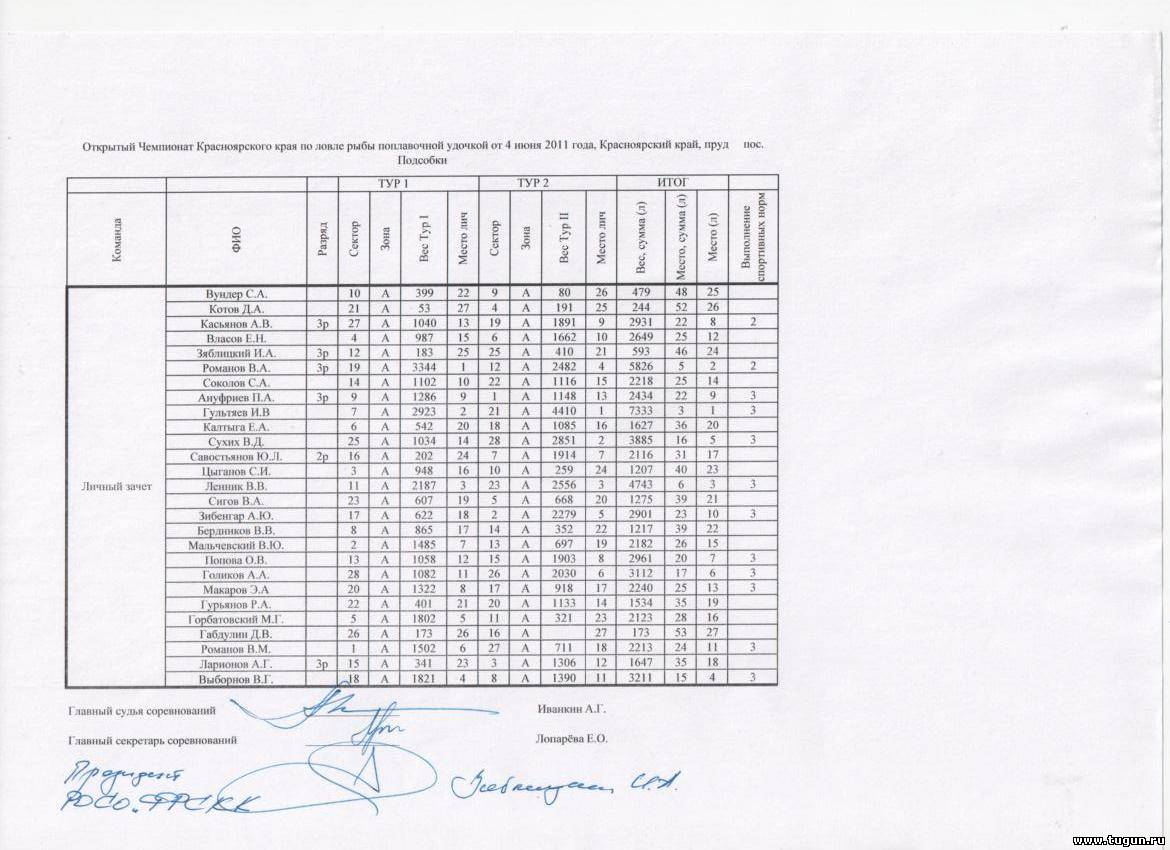 Открытый Чемпионат Красноярского края по ловле рыбы поплавочной удочкой от 4 июня 2011 года, Красноярский край, пруд пос.
Подсобки
ТУР 1 ТУР 2 ИТОГ
Команда ФИО Разряд Сектор Зона Вес Тур I Место лич Сектор Зона Вес Тур II Место лич Вес, сумма (л) Место, сумма (л) Место (л) Выполнение спортивных норм
Вундер С.А. 10 А 399 22 9 А 80 26 479 48 25
Котов Д.А. 21 А 53 27 4 А 191 25 244 52 26
Касьянов А.В. 3р 27 А 1040 13 19 А 1891 9 2931 22 8 2
Власов Е.Н. 4 А 987 15 6 А 1662 10 2649 25 12
Зяблицкий И.А. 3р 12 А 183 25 25 А 410 21 593 46 24
Романов В.А. 3р 19 А 3344 1 12 А 2482 4 5826 5 2 2
Соколов С.А. 14 А 1102 10 22 А 1116 15 2218 25 14
Ануфриев П.А. 3р 9 А 1286 9 1 А 1148 13 2434 22 9 3
Гультяев И.В 7 А 2923 2 21 А 4410 1 7333 3 1 3
Калтыга Е.А. 6 А 542 20 18 А 1085 16 1627 36 20
Сухих В.Д. 25 А 1034 14 28 А 2851 2 3885 16 5 3
Савостьянов Ю.Л. 2р 16 А 202 24 7 А 1914 7 2116 31 17
Цыганов С.И. 3 А 948 16 10 А 259 24 1207 40 23
Личный зачет Ленник В.В. 11 А 2187 3 23 А 2556 3 4743 6 3 3
Сигов В.А. 23 А 607 19 5 А 668 20 1275 39 21
Зибенгар А.Ю. 17 А 622 18 2 А 2279 5 2901 23 10 3
Бердников В.В. 8 А 865 17 14 А 352 22 1217 39 22
Мальчевский В.Ю. 2 А 1485 7 13 А 697 19 2182 26 15
Попова О.В. 13 А 1058 12 15 А 1903 8 2961 20 7 3
Голиков А.А. 28 А 1082 11 26 А 2030 6 3112 17 6 3
Макаров Э.А 20 А 1322 8 17 А 918 17 2240 25 13 3
Гурьянов Р.А. 22 А 401 21 20 А 1133 14 1534 35 19
Горбатовский М.Г. 5 А 1802 5 11 А 321 23 2123 28 16
Габдулин Д.В. 26 А 173 26 16 А 27 173 53 27
Романов В.М. 1 А 1502 6 27 А 711 18 2213 24 11 3
Ларионов А.Г. 3р 15 А 341 23 3 А 1306 12 1647 35 18
Выборнов В.Г. 18 А 1821 4 8 А 1390 11 3211 15 4 3
Главный судья соревнований Иванкин А.Г.
Главный секретарь соревнований Лопарёва Е.О.
Президент
РОСО "ФРСКК И.А.
www.tugun.ru